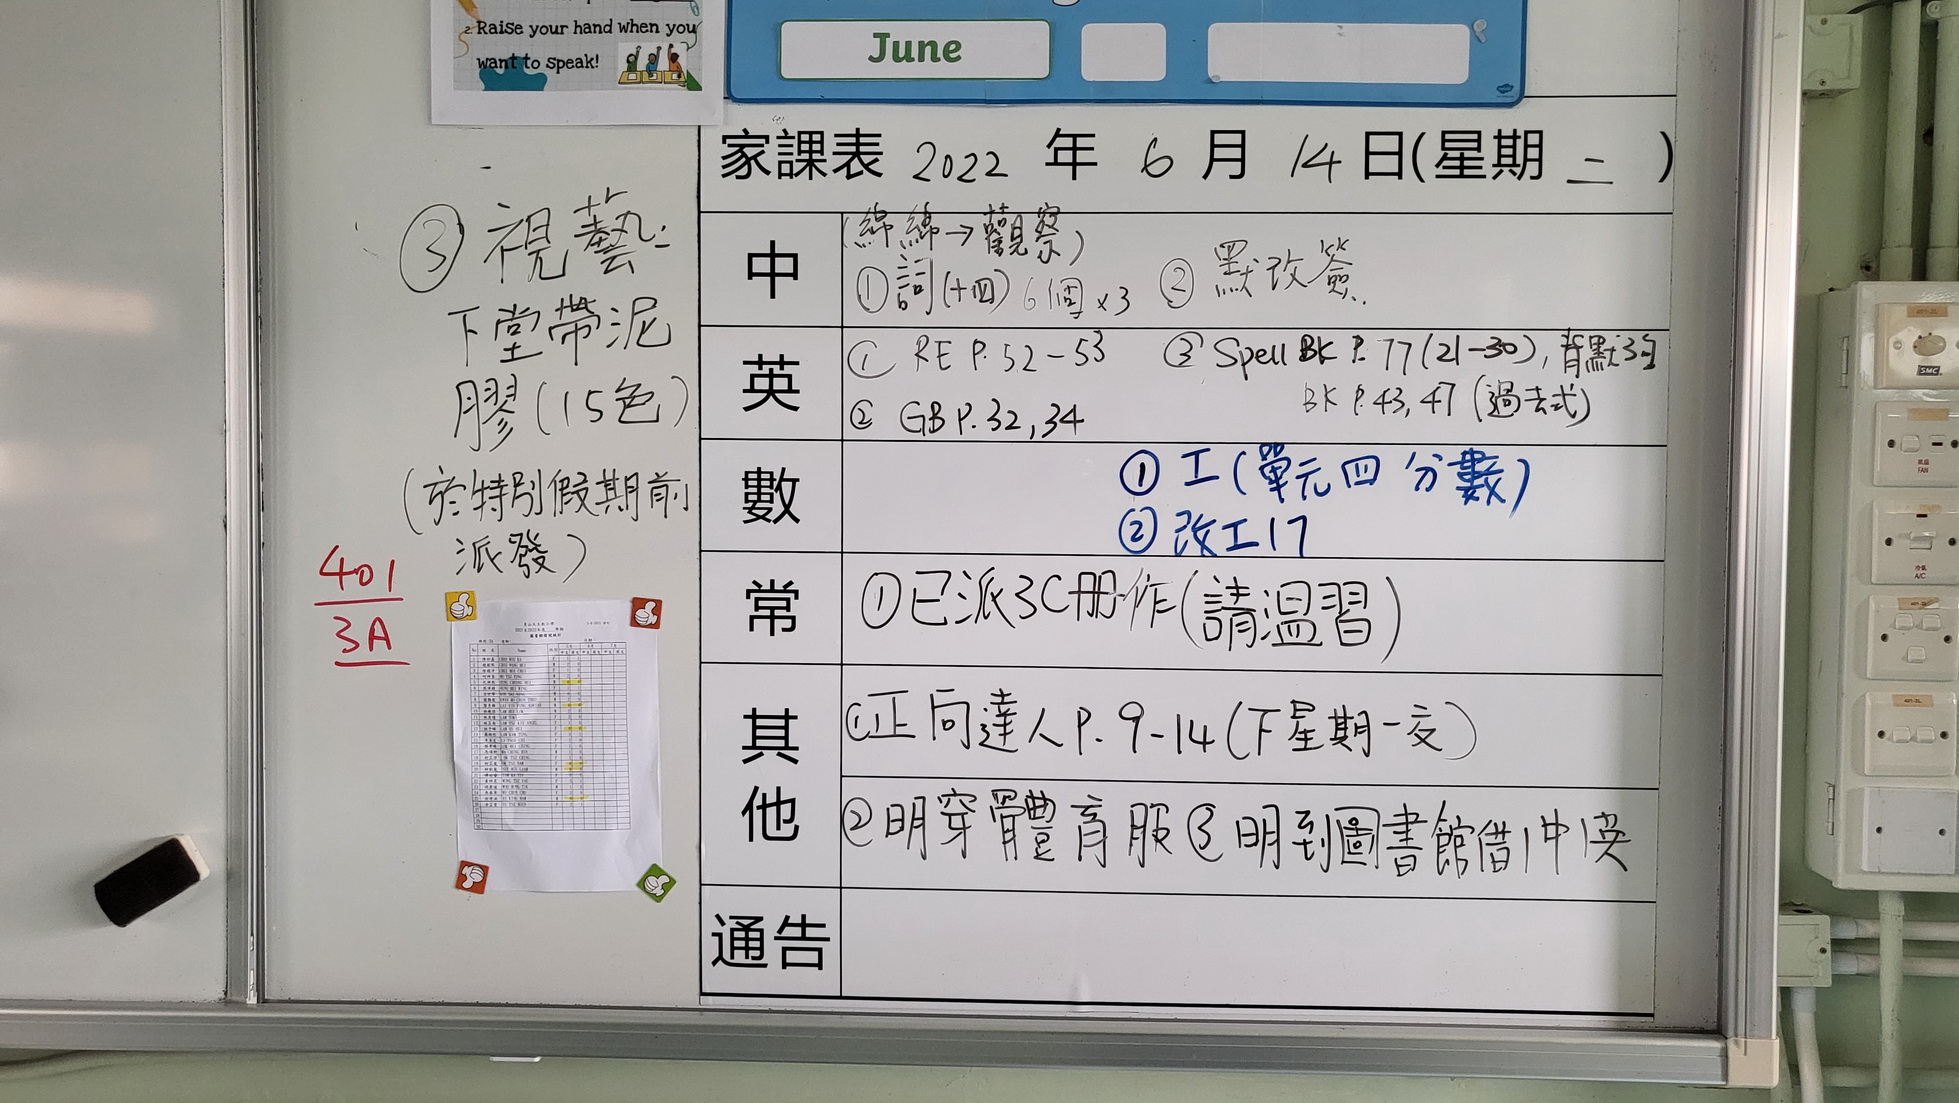 2. Raise your hand when you
want to speak!
June
家課表 2022 年 6 月 14 日(星期 二 )
③ 視藝:
下堂帶泥
膠(15色)
(於特別假期前
派發)
401
3A
中
(綿綿→觀察)
①詞(十四) 6個 x3 ② 默改簽
英
① RE P.52-53 ③ Spell BK P.77(21-30), 背默3句
② GB P.32,34 BK P.43,47 (過去式)
數
① 工(單元四 分數)
② 改工17
常
①已派3C冊作(請溫習)
其他
①正向達人P.9-14(下星期一交)
②明穿體育服③明到圖書館借1中1英
通告